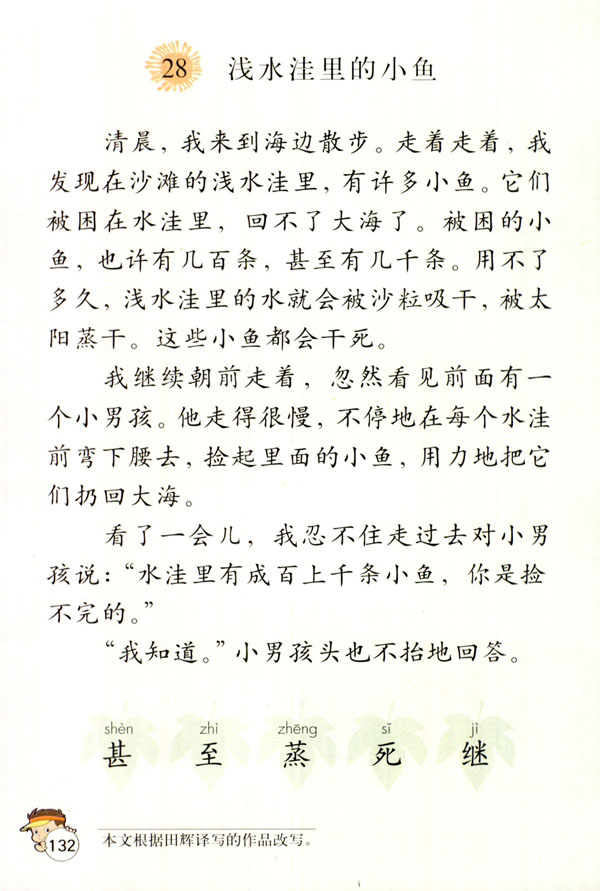 28 浅水洼里的小鱼
清晨，我来到海边散步。走着走着，我
发现在沙滩的浅水洼里，有许多小鱼。它们
被困在水洼里，回不了大海了。被困的小
鱼，也许有几百条，甚至有几千条。用不了
多久，浅水洼里的水就会被沙粒吸干，被太
阳蒸干。这些小鱼都会干死。
我继续朝前走着，忽然看见前面有一
个小男孩。他走得很慢，不停地在每个水洼
前弯下腰去，捡起里面的小鱼，用力地把它
们扔回大海。
看了一会儿，我忍不住走过去对小男
孩说：“水洼里有成百上千条小鱼，你是捡
不完的。”
“我知道。”小男孩头也不抬地回答。
shèn zhì zhēng sǐ jì
甚 至 蒸 死 继
132 本文根据田辉译写的作品改写。